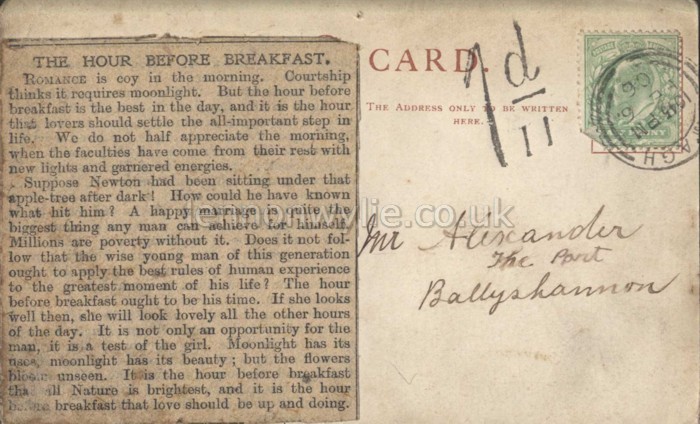 THE HOUR BEFORE BREAKFAST.
ROMANCE is coy in the morning. Courtship
thinks it requires moonlight. But the hour before
breakfast is the best in the day, and it is the hour
that lovers should settle the all-important step in
life. We do not half appreciate the morning,
when the faculties have come from their rest with
new lights and garnered energies.
Suppose Newton had been sitting under that
apple-tree after dark! How could he have known
what hit him? A happy marriage is quite the
biggest thing any man can achieve for himself.
Millions are poverty without it. Does it not fol-
low that the wise young man of this generation
ought to apply the best rules of human experience
to the greatest moment of his life? The hour
before breakfast ought to be his time. If she looks
well then, she will look lovely all the other hours
of the day. It is not only an opportunity for the
man, it is a test of the girl. Moonlight has its
uses, moonlight has its beauty; but the flowers
bloom unseen. It is the hour before breakfast
that all Nature is brightest, and it is the hour
before breakfast that love should be up and doing.
CARD.
THE ADDRESS ONLY TO BE WRITTEN
HERE.
1d/11
AGH
Mr Alexander
The Port
Ballyshannon
lennonwylie.co.uk